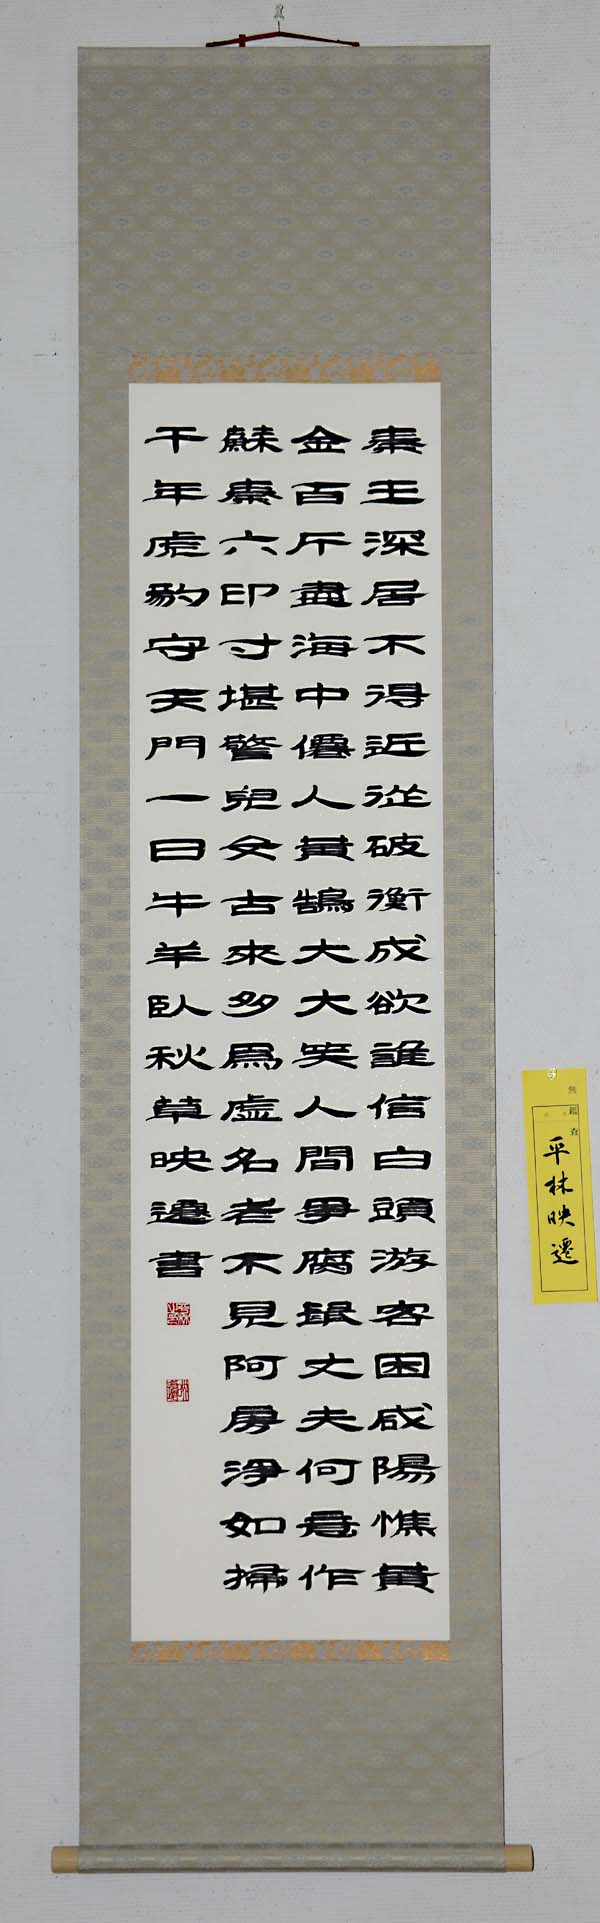 秦王深居不得近從破衡成欲誰信白頭游客困咸陽憔黄
金百斤盡海中僊人黄鵠大大笑人間爭腐鼠丈夫何意作
蘇秦六印寸堪警兒女古來多爲虚名老不見阿房淨如掃
千年虎豹守天門一日牛羊臥秋草映遷書
無鑑査
平林映遷